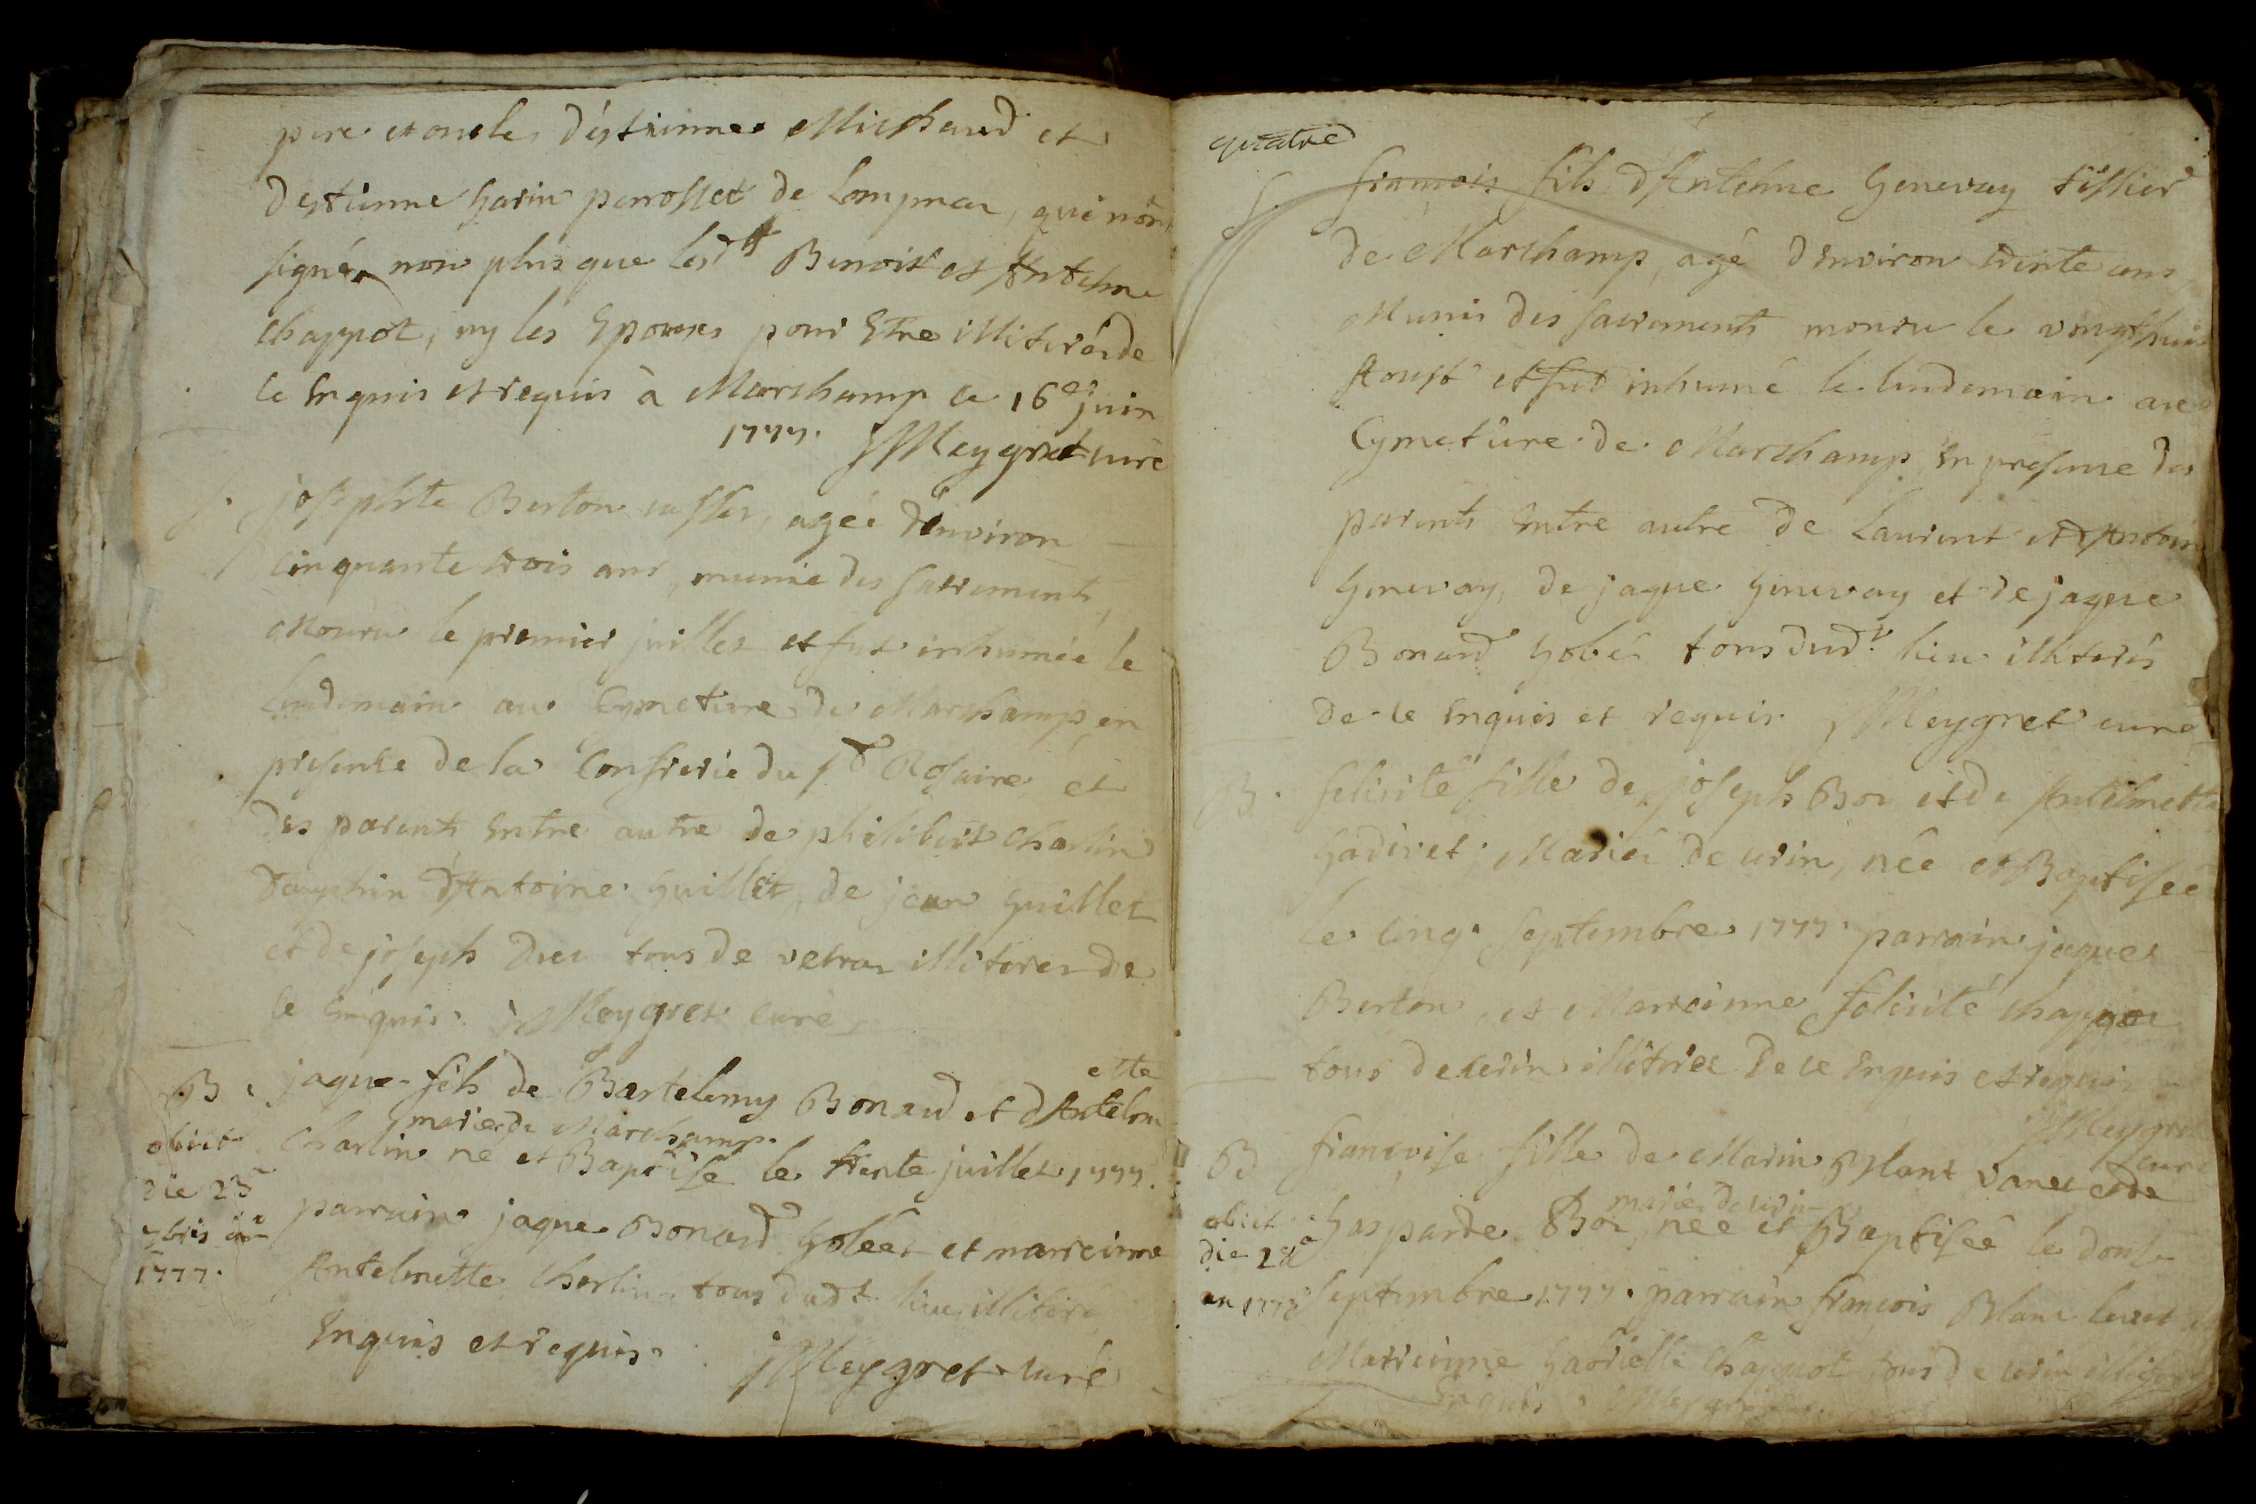 pere et oncle, d'éstienne Michaud et
d'estienne Garin perrosset de Lompnas, qui n'on
signé, non plus que lesdts Benoit et Antelme
Chappot, ny les Epouses pour Etre illiterés de
ce Enquis et requis à Marchamp ce 16e juin
1777. JMeygret curé
S. josephte Berton, agée d'environ
cinquante trois ans, munie des sacrements,
mouru le premier juillet et fut inhumée le
lendemain au Cymetiere de Marchamp, en
presence de la Confrerie du St Rosaire, et
des parents Entre autre de philibert Charlin
Dauphin d'Antoine Guillet, de jean Guillet
et de joseph tous de illiteres de
ce Enquis. JMeygret curé
B. jaque fils de Bartelemy Bonard et d'Antelmette
Charlin mariés de Marchamp né et Baptisé le trente juillet 1777.
parrain jaque Bonard Gobée et marreinne
Antelmette Charlin tous dudt lieu illiteré
Enquis et requis. JMeygret curé
obiit
die 25
7bris
1777.
quatre
S. francois fils d'Antelme Genevay tissier
de Marchamp, agé d'Environ trente ans,
Munis des sacrements mouru le vingt huit
Aoust et fut inhumé le lendemain au
Cymetiere de Marchamp En presence des
parents Entre autre de Laurent et d'Antoine
Genevay, de jaque Genevay et de jaque
Bonard Gobée tous dudt lieu illiterés
de ce Enquis et requis JMeygret curé
B. felicité fille de joseph Bor et de Antelmette
Gadiret, Mariés de cerin, née et Baptisée
le cinq septembre 1777. parrain jaques
Berton, et Marreinne felicité Chappot
tous de cerin illiteres de ce Enquis et requis
JMeygret
curé
B francoise fille de Marin Blanc et de
Gasparde Bor, mariés de cerin née et Baptisée le douse
septembre 1777. parrain francois Blanc et
Marreinne Gabrielle Chappot tous de cerin
Enquis. JMeygret
obiit
die 28a
an 1778